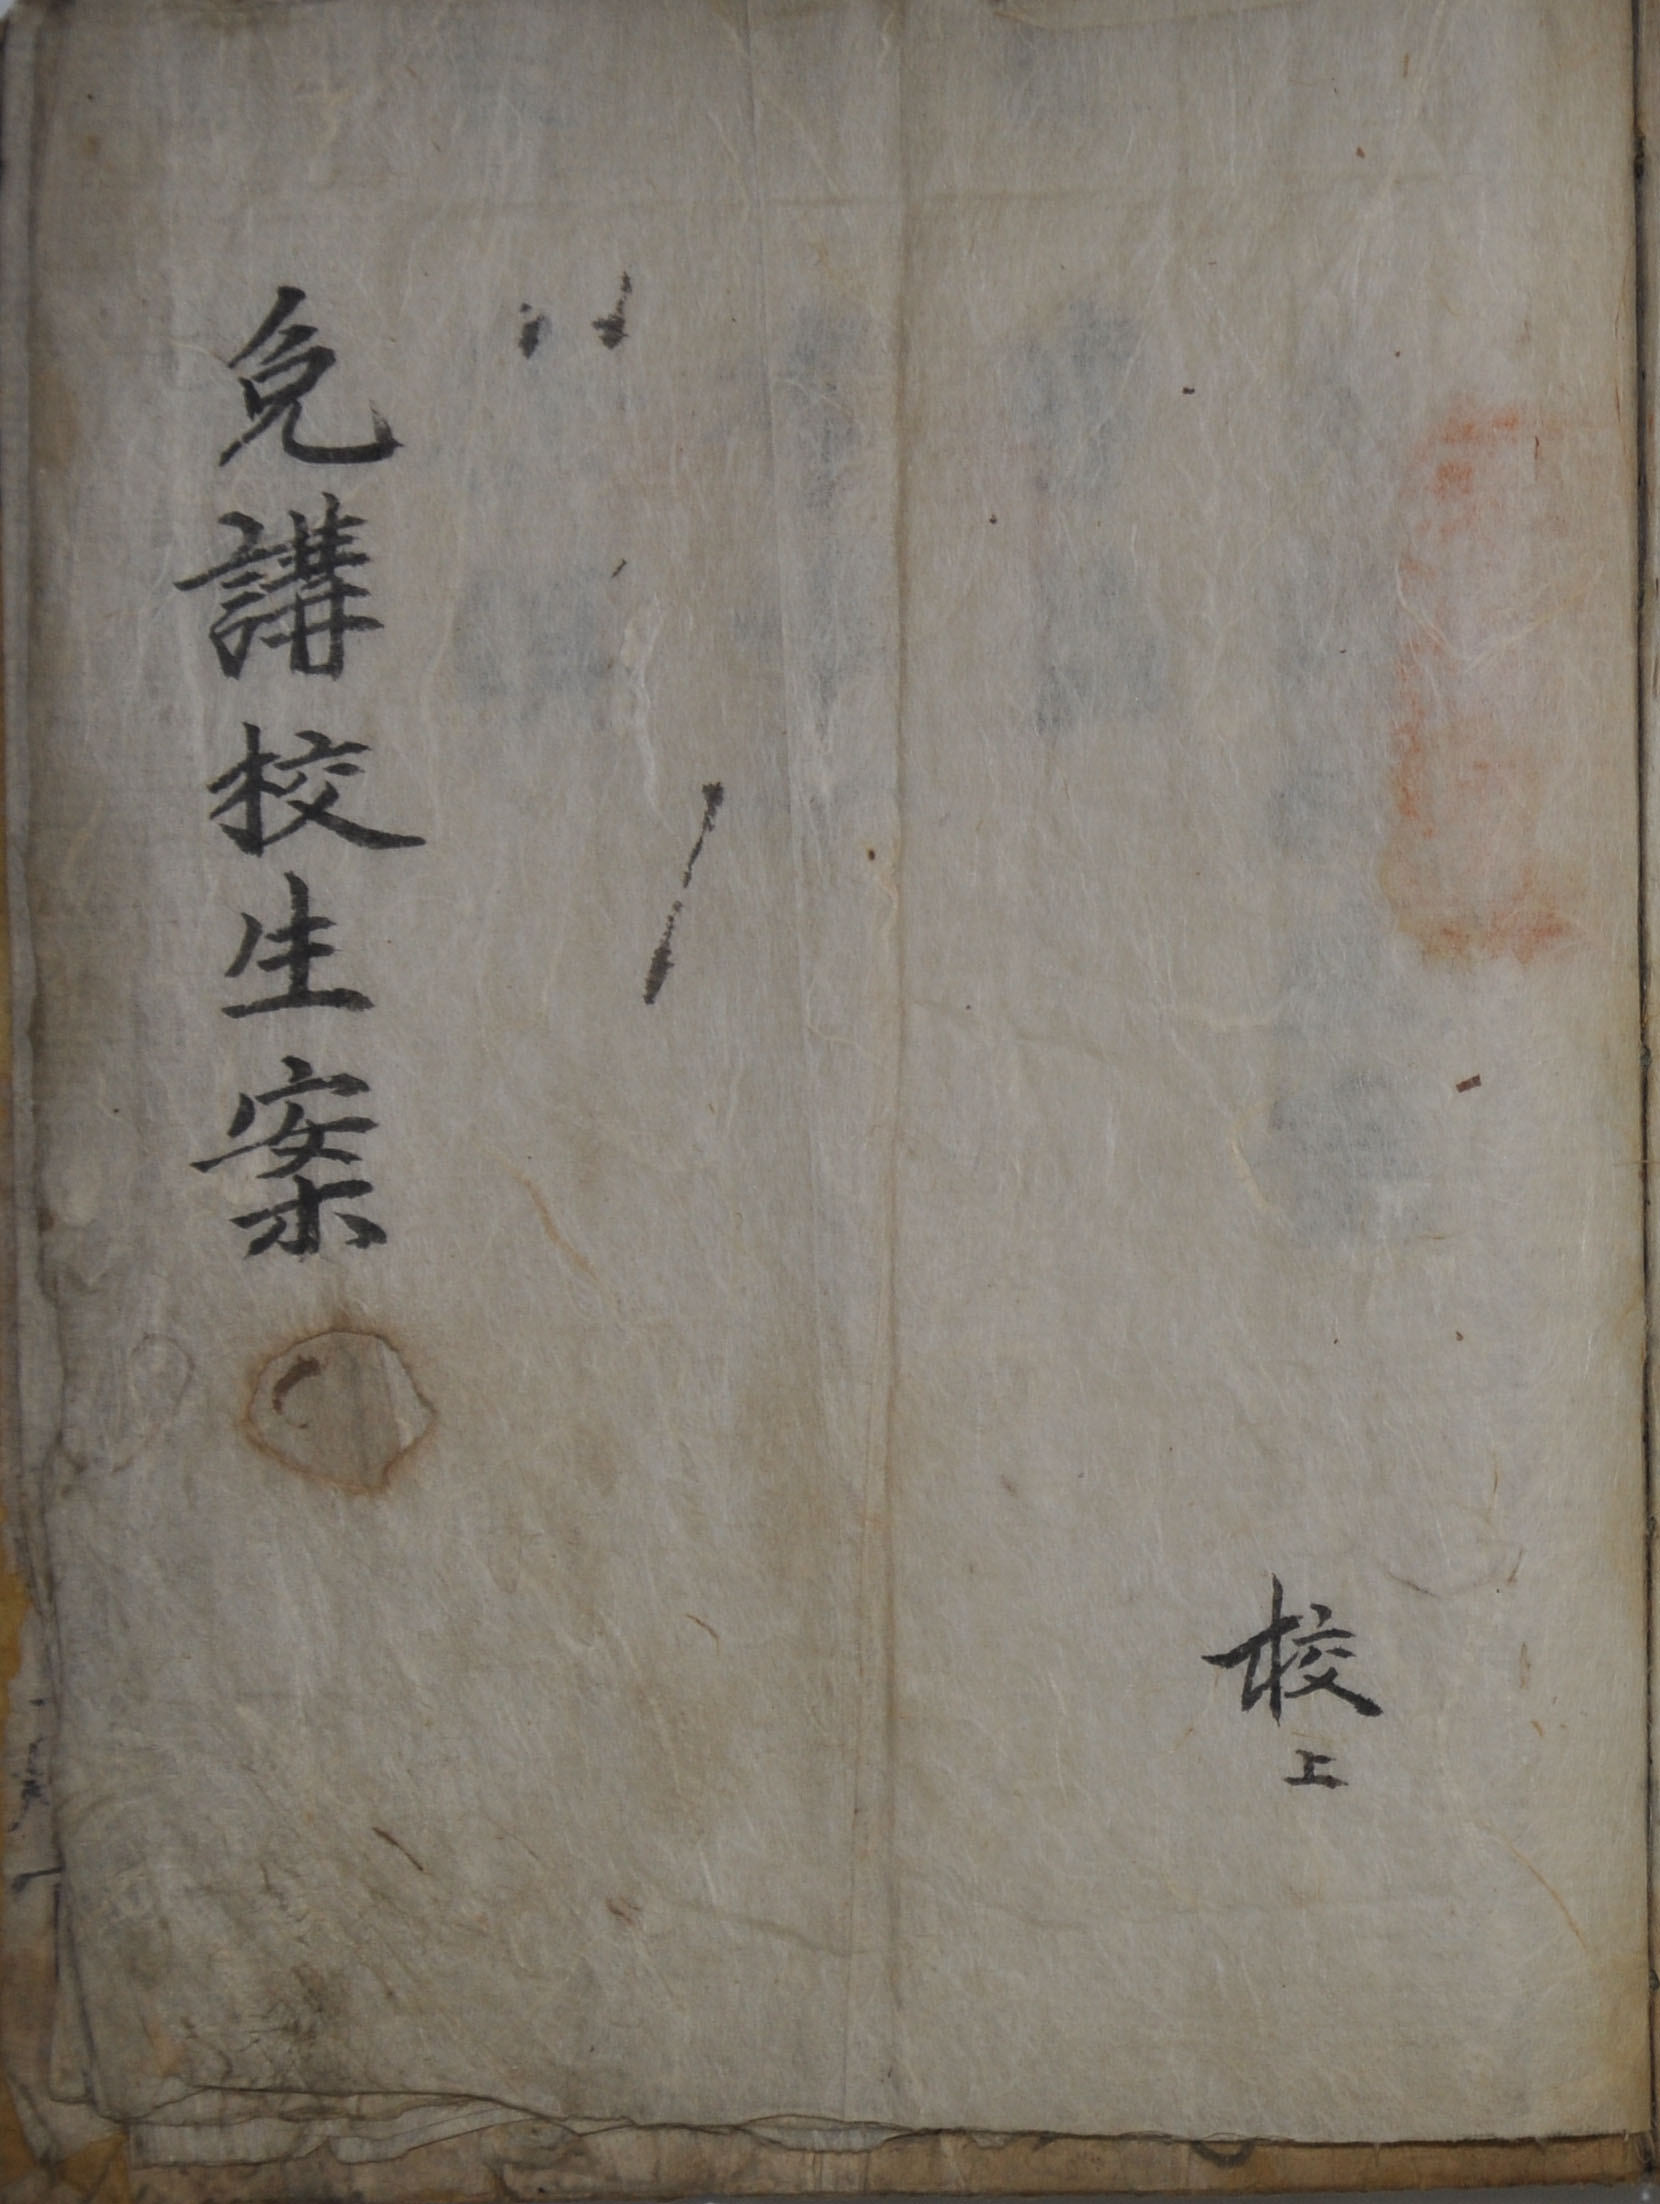 校上
免講校生案